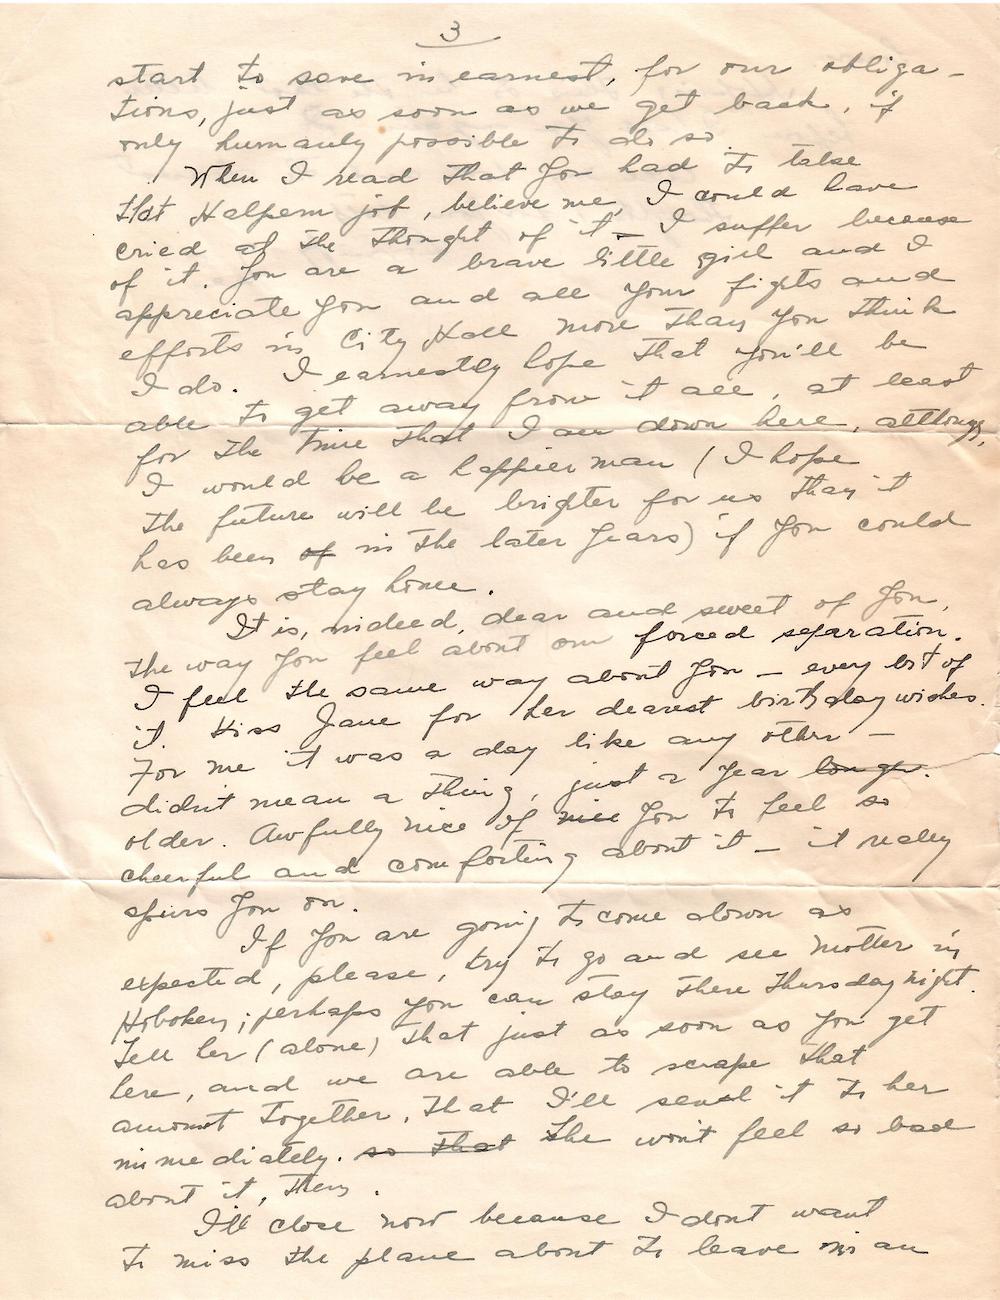 3
start to save in earnest, for our obliga-
tions, just as soon as we get back, if
only humanly possible to do so.
When I read that you had to take
that Halpern job, believe me, I could have
cried at the thought of it — I suffer because
of it. You are a brave little girl and I
appreciate you and all your fights and
efforts in City Hall more than you think
I do. I earnestly hope that you'll be
able to get away from it all, at least
for the time that I am down here, although,
I would be a happier man (I hope
the future will be brighter for us than it
has been of in the later years) if you could
always stay home.
It is, indeed, dear and sweet of you,
the way you feel about our forced separation.
I feel the same way about you — every bit of
it. Kiss Jane for her dearest birthday wishes.
For me it was a day like any other —
didn't mean a thing, just a year longer.
older. Awfully nice of nice you to feel so
cheerful and comforting about it — it really
spurs you on.
If you are going to come down as
expected, please, try to go and see Mother in
Hoboken; perhaps you can stay there Thursday night.
Tell her (alone) that just as soon as you get
here, and we are able to scrape that
amount together, that I'll send it to her
immediately. so that She won't feel so bad
about it, then.
I'll close now because I dont want
to miss the plane about to leave in an